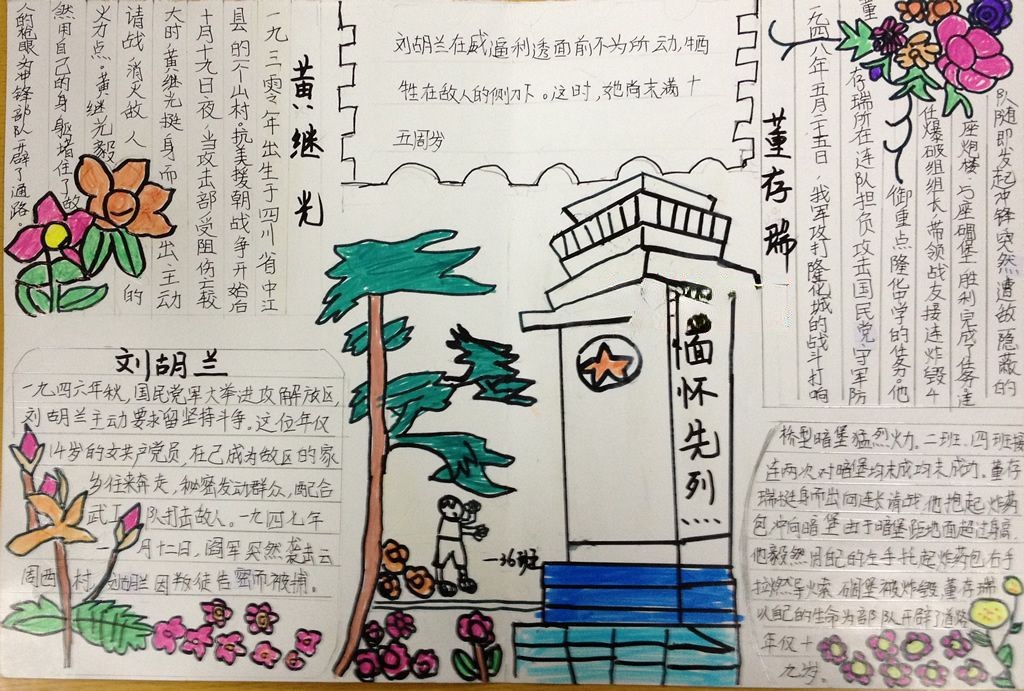 黄继光
一九三零年出生于四川省中江
县的一个山村。抗美援朝战争开始后
十月十九日夜,当攻击部受阻伤亡较
大时黄继光挺身而出主动
请战消灭敌人的
火力点。黄继光毅
然用自己的身躯堵住了敌
人的枪眼为冲锋部队开辟了通路。
刘胡兰在威逼利透面前不为所动,牺
牲在敌人的侧刀下。这时,她尚未满十
五周岁
董存瑞
一九四八年五月二十五日,我军攻打隆化城的战斗打响
董存瑞所在连队担负攻击国民党守军防
御重点隆化中学的任务。他
任爆破组组长,带领战友接连炸毁4
座炮楼、5座碉堡,胜利完成了任务。连
队随即发起冲锋,突然遭敌隐蔽的
刘胡兰
一九四六年秋,国民党军大举进攻解放区,
刘胡兰主动要求留坚持斗争。这位年仅
14岁的女共产党员,在己成为敌区的家
乡往来奔走,秘密发动群众,配合
武工队打击敌人。一九四七年
一月十二日,阎军突然袭击云
周西村,刘胡兰因叛徒告密而被捕。
缅怀先列
一36班
桥型暗堡猛烈火力。二班、四班接
连两次对暗堡均未成均未成功。董存
瑞挺身而出向连长请战,他抱起炸药
包冲向暗堡由于暗堡距地面超过身高,
他毅然用自己的左手托起炸药包右手
拉燃导火索,碉堡被炸毁,董存瑞
以自己的生命为部队开辟了道路
年仅十
九岁。